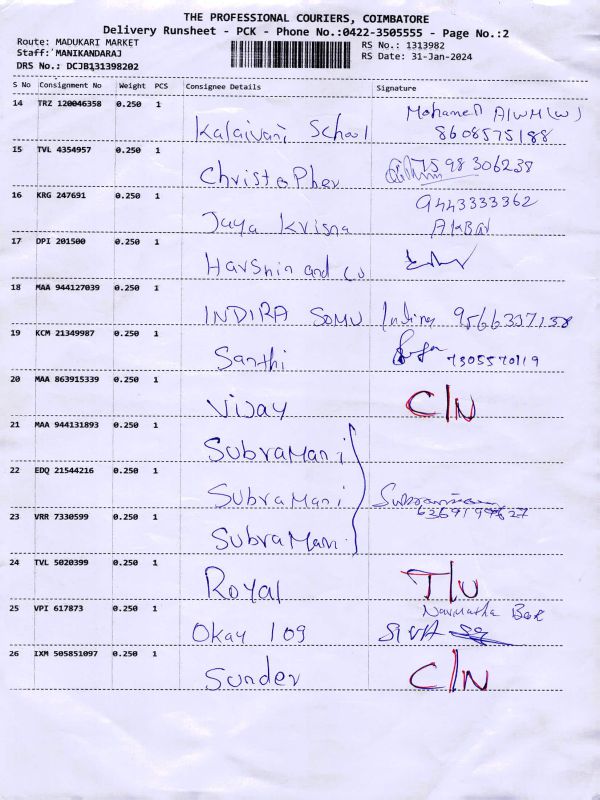 THE PROFESSIONAL COURIERS, COIMBATORE
Delivery Runsheet - PCK - Phone No.:0422-3505555 - Page No.:2
Route: MADUKARI MARKET
Staff: MANIKANDARAJ
DRS No.: DCJB131398202
RS No.: 1313982
RS Date: 31-Jan-2024
S No Consignment No Weight PCS Consignee Details Signature
14 TRZ 120046358 0.250 1
Kalaivani School Mohamed
8608575188
15 TVL 4354957 0.250 1
Christopher 7598306238
16 KRG 247691 0.250 1
9443333362
Jaya Krisna AKBAR
17 DPI 201500 0.250 1
Harshin and co
18 MAA 944127039 0.250 1
INDIRA SOMU Indira 9566337138
19 KCM 21349987 0.250 1
Santhi 7305570119
20 MAA 863915339 0.250 1
Vijay C/N
21 MAA 944131893 0.250 1
SubraMani
22 EDQ 21544216 0.250 1
SubraMani
23 VRR 7330599 0.250 1
SubraMani
24 TVL 5020399 0.250 1
Royal T/U
25 VPI 617873 0.250 1
Okay 109 SIVA
26 IXM 505851097 0.250 1
Sunder C/N